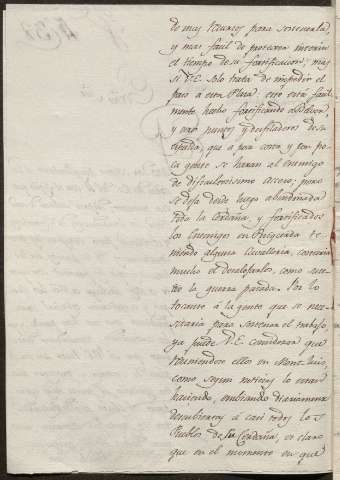 de mas recursos para sostenerla,
y mas facil de procurar interin
el tiempo de su fortificacion; mas
si V.E. solo trata de impedir el
paso a esta Plaza, esto está facil
mente hecho fortificando a Belver,
y otros puntos y desfiladeros de su
, que a poca costa, y con po
ca gente se haran al enemigo
de dificultosisimo acceso; pero
se deja desde luego abandonada
toda la Cerdaña, y fortificados
los Enemigos en Puigcerdá te-
niendo alguna Cavalleria, costaria
mucho el desalojarlos, como suce-
dio la guerra pasada. Por lo
tocante á la gente que se nece-
sitaria para sostener el trabajo,
ya puede V.E. considerar que
reuniendose ellos en Mont-Luis,
como segun noticias lo estan
haciendo, embiando diariamente
descubiertas á casi todos los
Pueblos de la Cerdaña, es claro
que en el momento en que